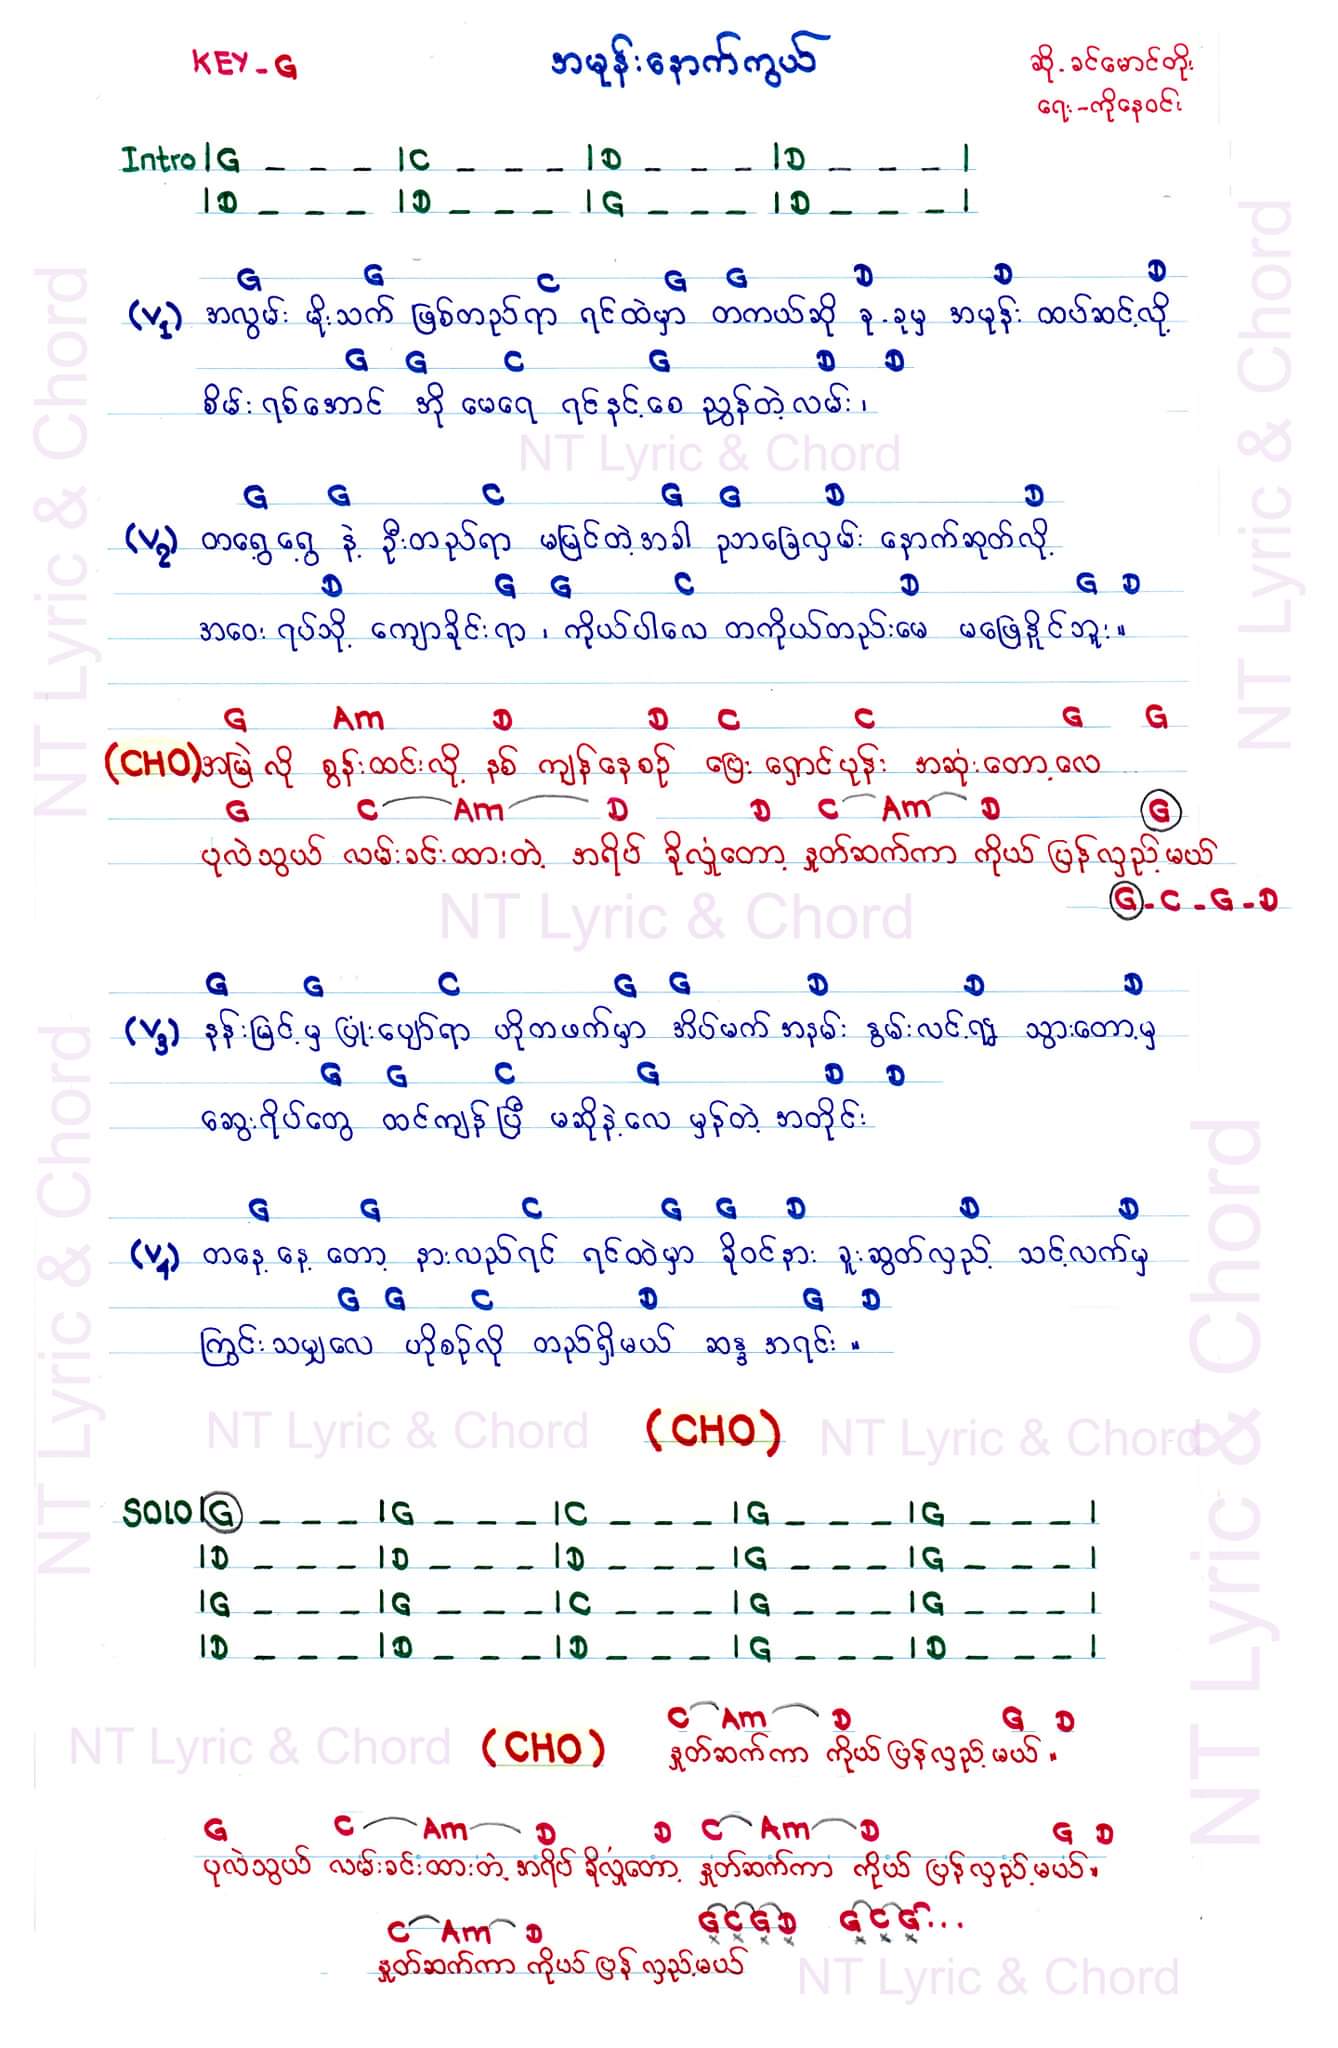 KEY - G
အမုန်းနောက်ကွယ်
ဆို - ခင်မောင်တိုး
ရေး - ကိုနေဝင်း
Intro | G _ _ _ | C _ _ _ | D _ _ _ | D _ _ _ |
| D _ _ _ | D _ _ _ | G _ _ _ | D _ _ _ |
G G C G G D D D
(V1) အလွမ်း မိုးသက် ဖြစ်တည်ရာ ရင်ထဲမှာ တကယ်ဆို ခု - ခုမှ အမုန်း ထပ်ဆင့်လို့
G G C G D D
စိမ်း ရစ်အောင် အို မေရေ ရင်နင့်စေ ညွှန်တဲ့လမ်း ၊
NT Lyric & Chord
G G C G G D D
(V2) တရွေ့ရွေ့ နဲ့ ဦးတည်ရာ မမြင်တဲ့အခါ ဥဘခြေလှမ်း နောက်ဆုတ်လို့
D G G C D G D
အဝေး ရပ်သို့ ကျောခိုင်းရာ ၊ ကိုယ်ပါလေ တကိုယ်တည်းမေ မဖြေနိုင်ဘူး ။
G Am D D C C G G
(CHO) အမြဲ လို စွန်းထင်းလို့ နစ် ကျန်နေစဉ် ဗြေး ရှောင်ပုန်း အဆုံးတော့လေ
G C Am D D C Am D G
ပုလဲသွယ် လမ်းခင်းထားတဲ့ အရိပ် ခိုလှုံတော့ နှုတ်ဆက်ကာ ကိုယ် ပြန်လှည့်မယ်
G - C - G - D
NT Lyric & Chord
G G C G G D D D
(V3) နန်းမြင့်မှ ပြုံးပျော်ရာ ဟိုဘဖက်မှာ အိပ်မက် အနမ်း နွမ်းလင့်ရွှဲ့ သွားတော့မှ
G G C G D D
ဆွေးရိပ်တွေ ထင်ကျန်ပြီ မဆိုနဲ့လေ မှန်တဲ့ အတိုင်း
G G C G G D D D
(V4) တနေ့ နေ့ တော့ နားလည်ရင် ရင်ထဲမှာ ခိုဝင်နား ခူးဆွတ်လှည့် သင့်လက်မှ
G G C D G D
ကြွင်းသမျှလေ ဟိုစဉ်လို တည်ရှိမယ် ဆန္ဒ အရင်း ။
NT Lyric & Chord
(CHO)
NT Lyric & Chord
SOLO | G _ _ _ | G _ _ _ | C _ _ _ | G _ _ _ | G _ _ _ |
| D _ _ _ | D _ _ _ | D _ _ _ | G _ _ _ | G _ _ _ |
| G _ _ _ | G _ _ _ | C _ _ _ | G _ _ _ | G _ _ _ |
| D _ _ _ | D _ _ _ | D _ _ _ | G _ _ _ | D _ _ _ |
C Am D G D
NT Lyric & Chord
(CHO) နှုတ်ဆက်ကာ ကိုယ် ပြန်လှည့်မယ် ။
G C Am D D C Am D G D
ပုလဲသွယ် လမ်းခင်းထားတဲ့ အရိပ် ခိုလှုံတော့ နှုတ်ဆက်ကာ ကိုယ် ပြန်လှည့်မယ် ။
C Am D G C G D G C G . . .
နှုတ်ဆက်ကာ ကိုယ် ပြန် လှည့်မယ်
NT Lyric & Chord
NT Lyric & Chord
NT Lyric & Chord
NT Lyric & Chord
NT Lyric & Chord